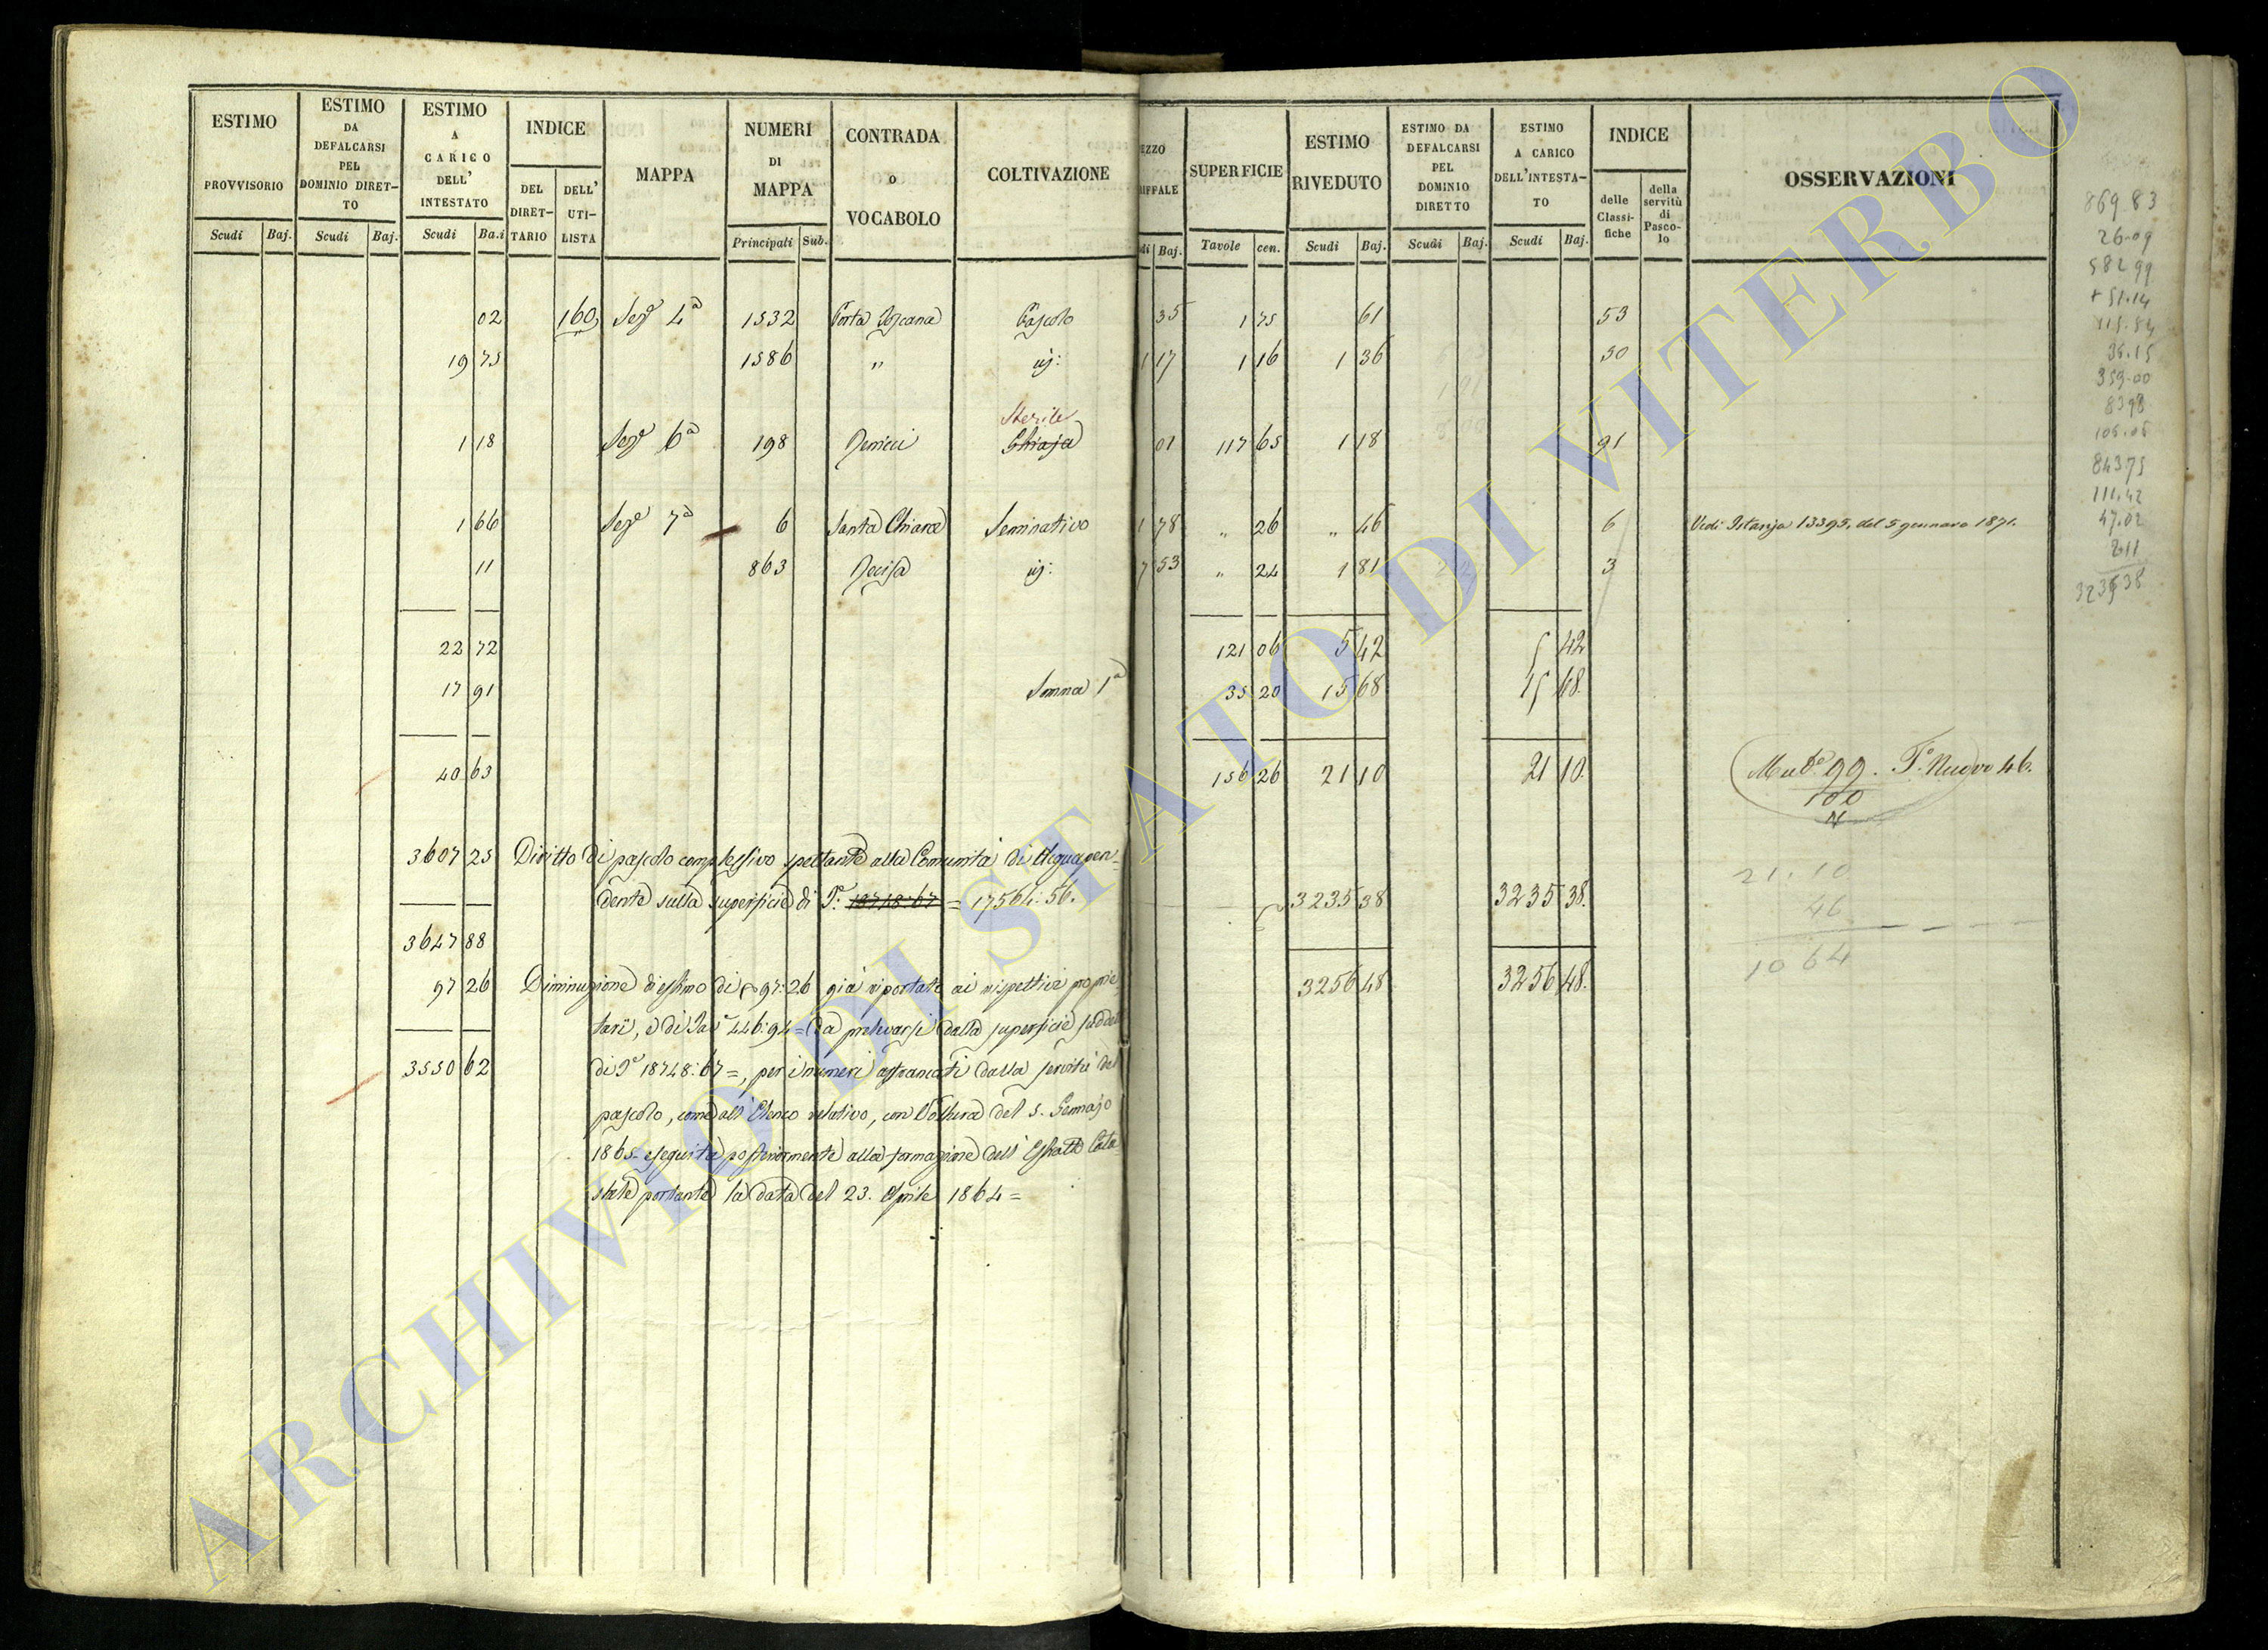 ESTIMO PROVVISORIO
Scudi Baj.
ESTIMO DA DEFALCARSI PEL DOMINIO DIRET-TO
Scudi Baj.
ESTIMO A CARICO DELL' INTESTATO
Scudi Ba.i
INDICE
DEL DIRET-TARIO
DELL' UTI-LISTA
MAPPA
NUMERI DI MAPPA
Principati Sub.
CONTRADA o VOCABOLO
COLTIVAZIONE
EZZO IFFALE
di Baj.
SUPERFICIE
Tavole cen.
ESTIMO RIVEDUTO
Scudi Baj.
ESTIMO DA DEFALCARSI PEL DOMINIO DIRETTO
Scudi Baj.
ESTIMO A CARICO DELL'INTESTA-TO
Scudi Baj.
INDICE
delle Classi-fiche
della servitù di Pasco-lo
OSSERVAZIONI
02 160 Sez.e 4a 1532 Porta Toscana Pascolo 35 1 75 61 53
19 75 1586 " id: 1 17 1 16 1 36 50
Sterile
1 18 Sez.e 6a 198 Chiaja 01 117 65 1 18 91
1 66 Sez.e 7a 6 Santa Chiara Seminativo 1 78 " 26 " 46 6 Vedi Istanza 13395, del 5 gennaro 1871.
11 863 Decisa id: 7 53 " 24 1 81 3
22 72 121 06 5 42 5 42
17 91 Somma 1a 35 20 15 68 15 68.
40 63 156 26 21 10 21 10. 99. T.o Nuovo 46.
100
3607 25 Diritto di pascolo complessivo spettante alla Comunità di Acquapen-
dente sulla superficie di T.e 18748:67 = 17564:56. 3235 38 3235 38.
3647 88
97 26 Diminuzione di estimo di 97:26 già riportate ai rispettivi proprie 3256 48 3256 48.
tari, e di Tav.e 446:94= da prelevarsi dalla superficie sudd
3550 62 di T.e 18748:67=, per i numeri affrancati dalla servitù del
pascolo, come all' Elenco relativo, con Voltura del 5. Gennajo
1865 eseguita posteriormente alla formazione dell' Estratto Cata
stale portante la data del 23. Aprile 1864=
21.10
46
10 64
869 83
26.09
582 99
+ 51.14
115.84
36.15
359.00
8398
105.05
843.75
111.42
47.02
2.11
3235 38
ARCHIVIO DI STATO DI VITERBO